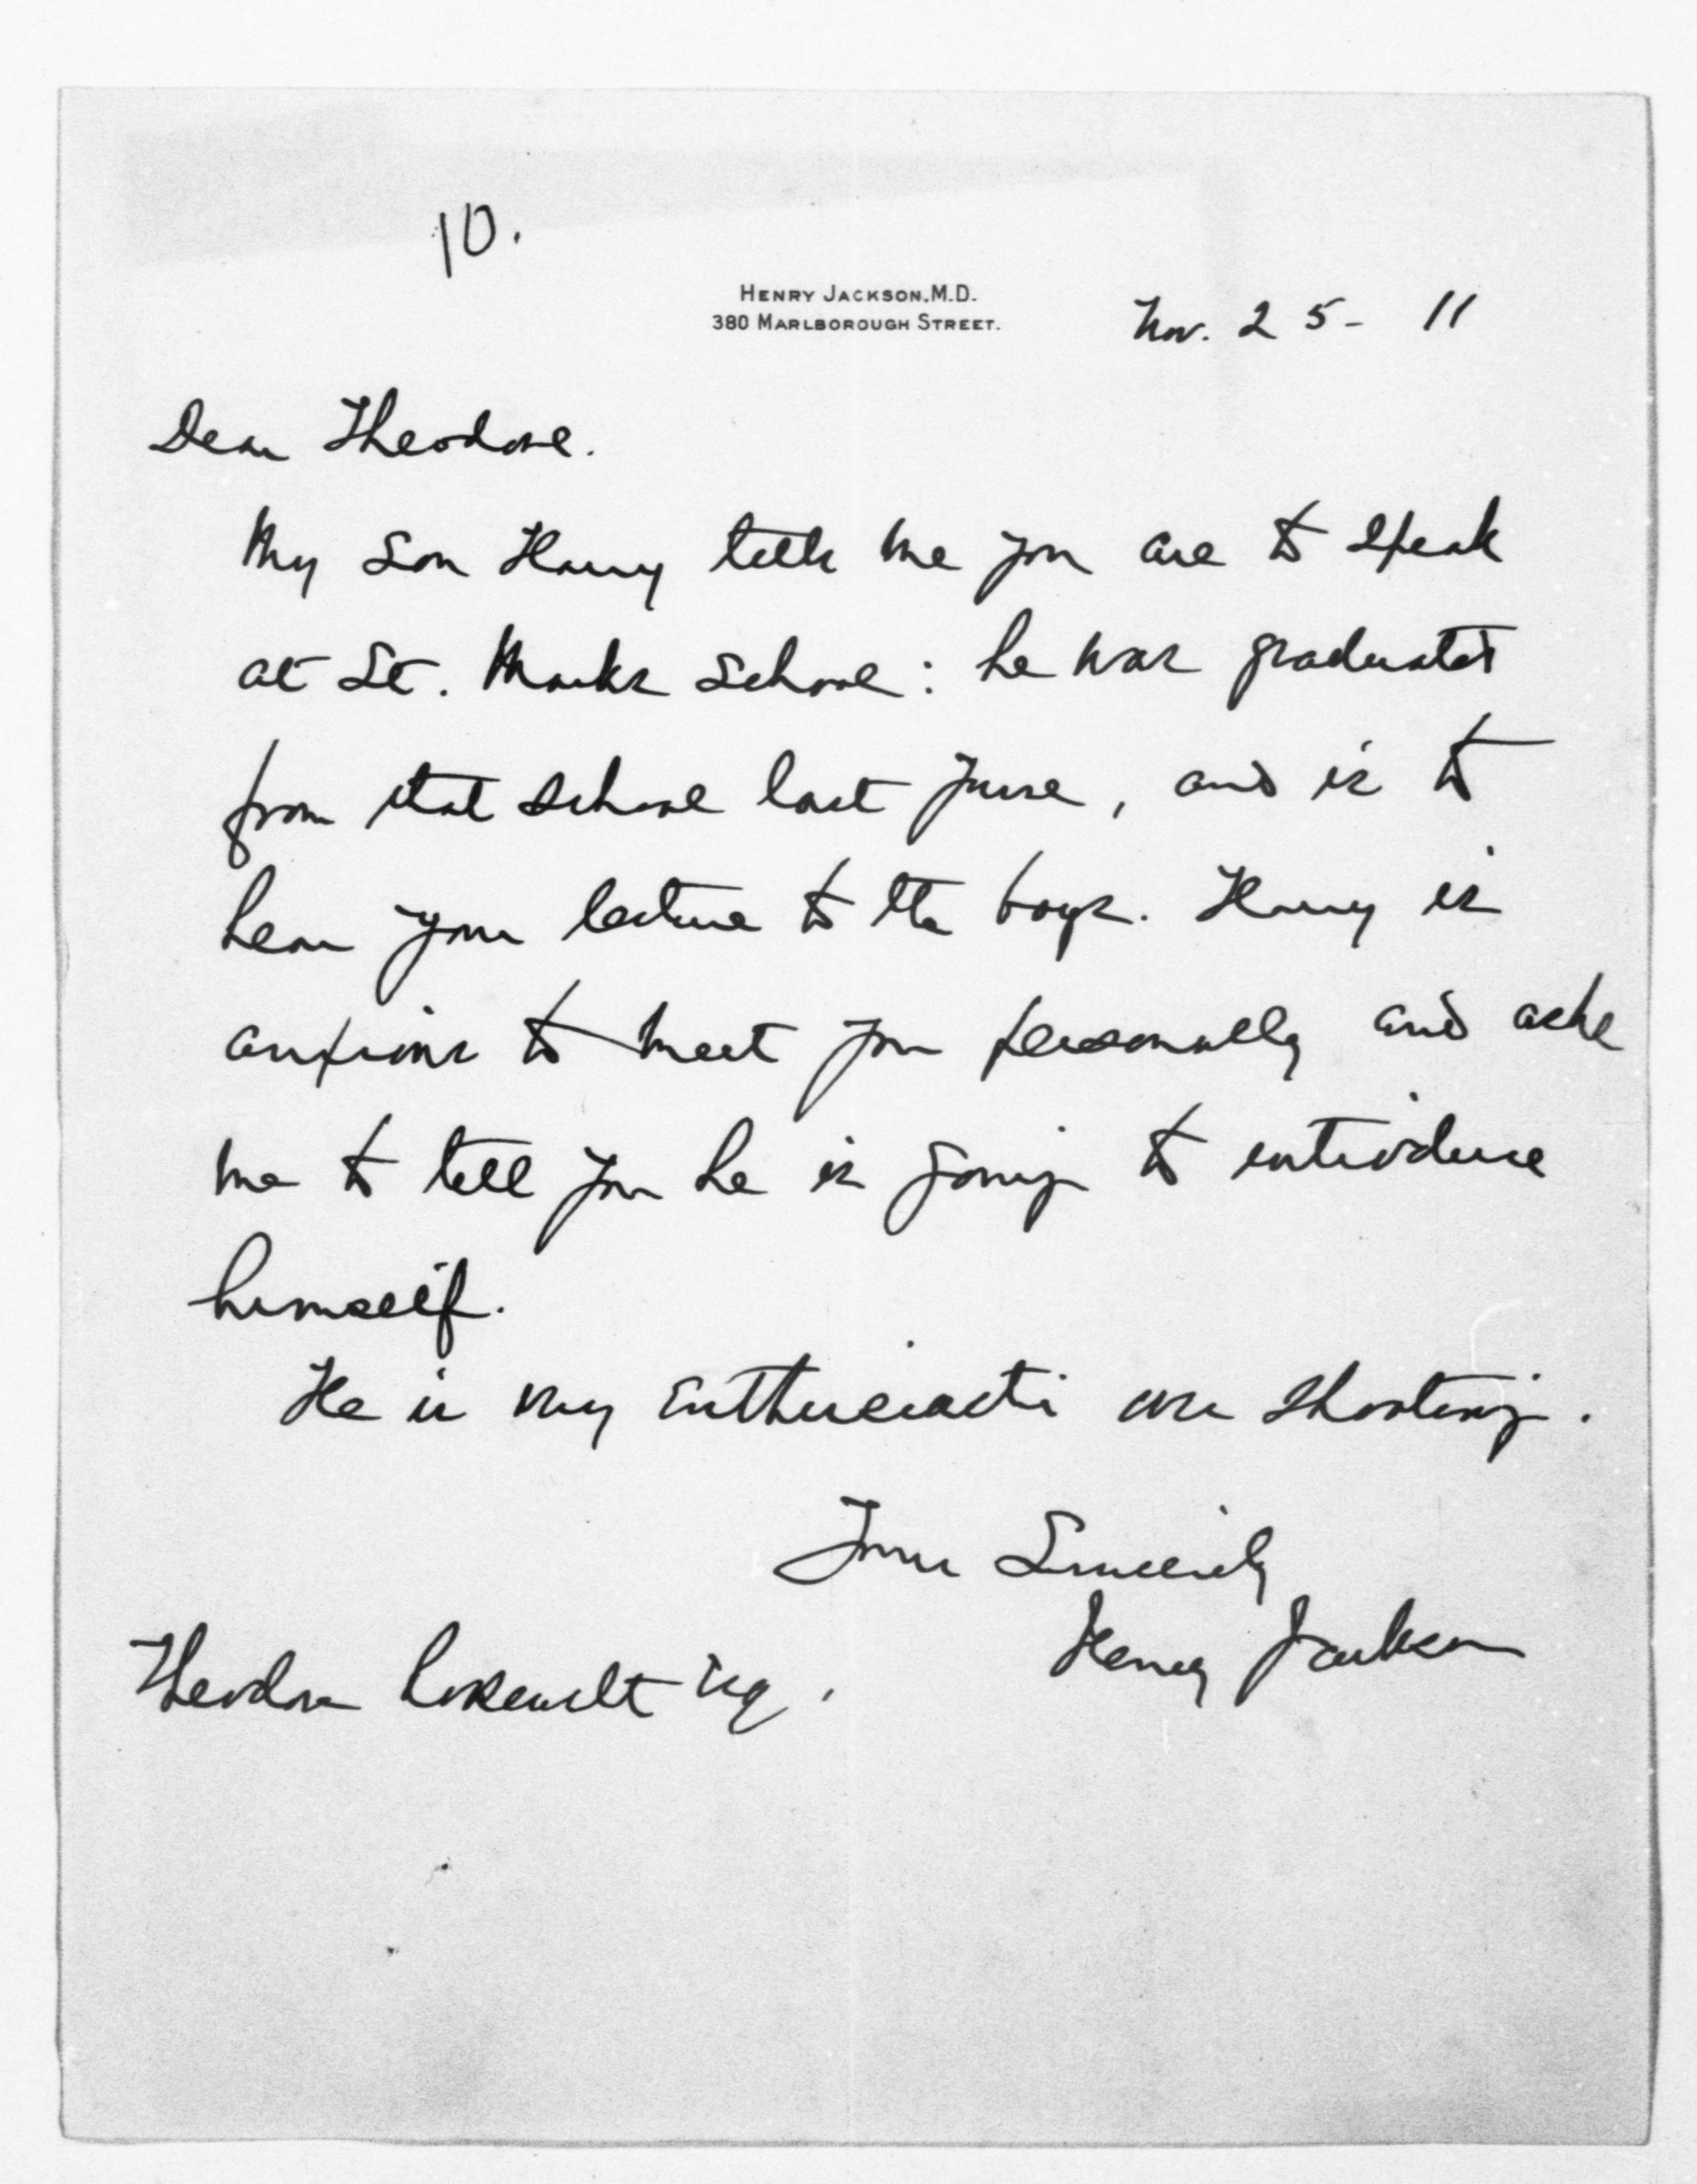 10.
HENRY JACKSON, M.D.
380 MARLBOROUGH STREET.
Nov. 25 - 11
Dear Theodore.
My son Harry tells me you are to speak
at St. Marks School: he was graduated
from that school last June, and is to
hear your lecture to the boys. Harry is
anxious to meet you personally and asks
me to tell you he is going to introduce
himself.
He is very enthusiastic on shooting.
Yours Sincerely
Henry Jackson
Theodore Roosevelt Esq.